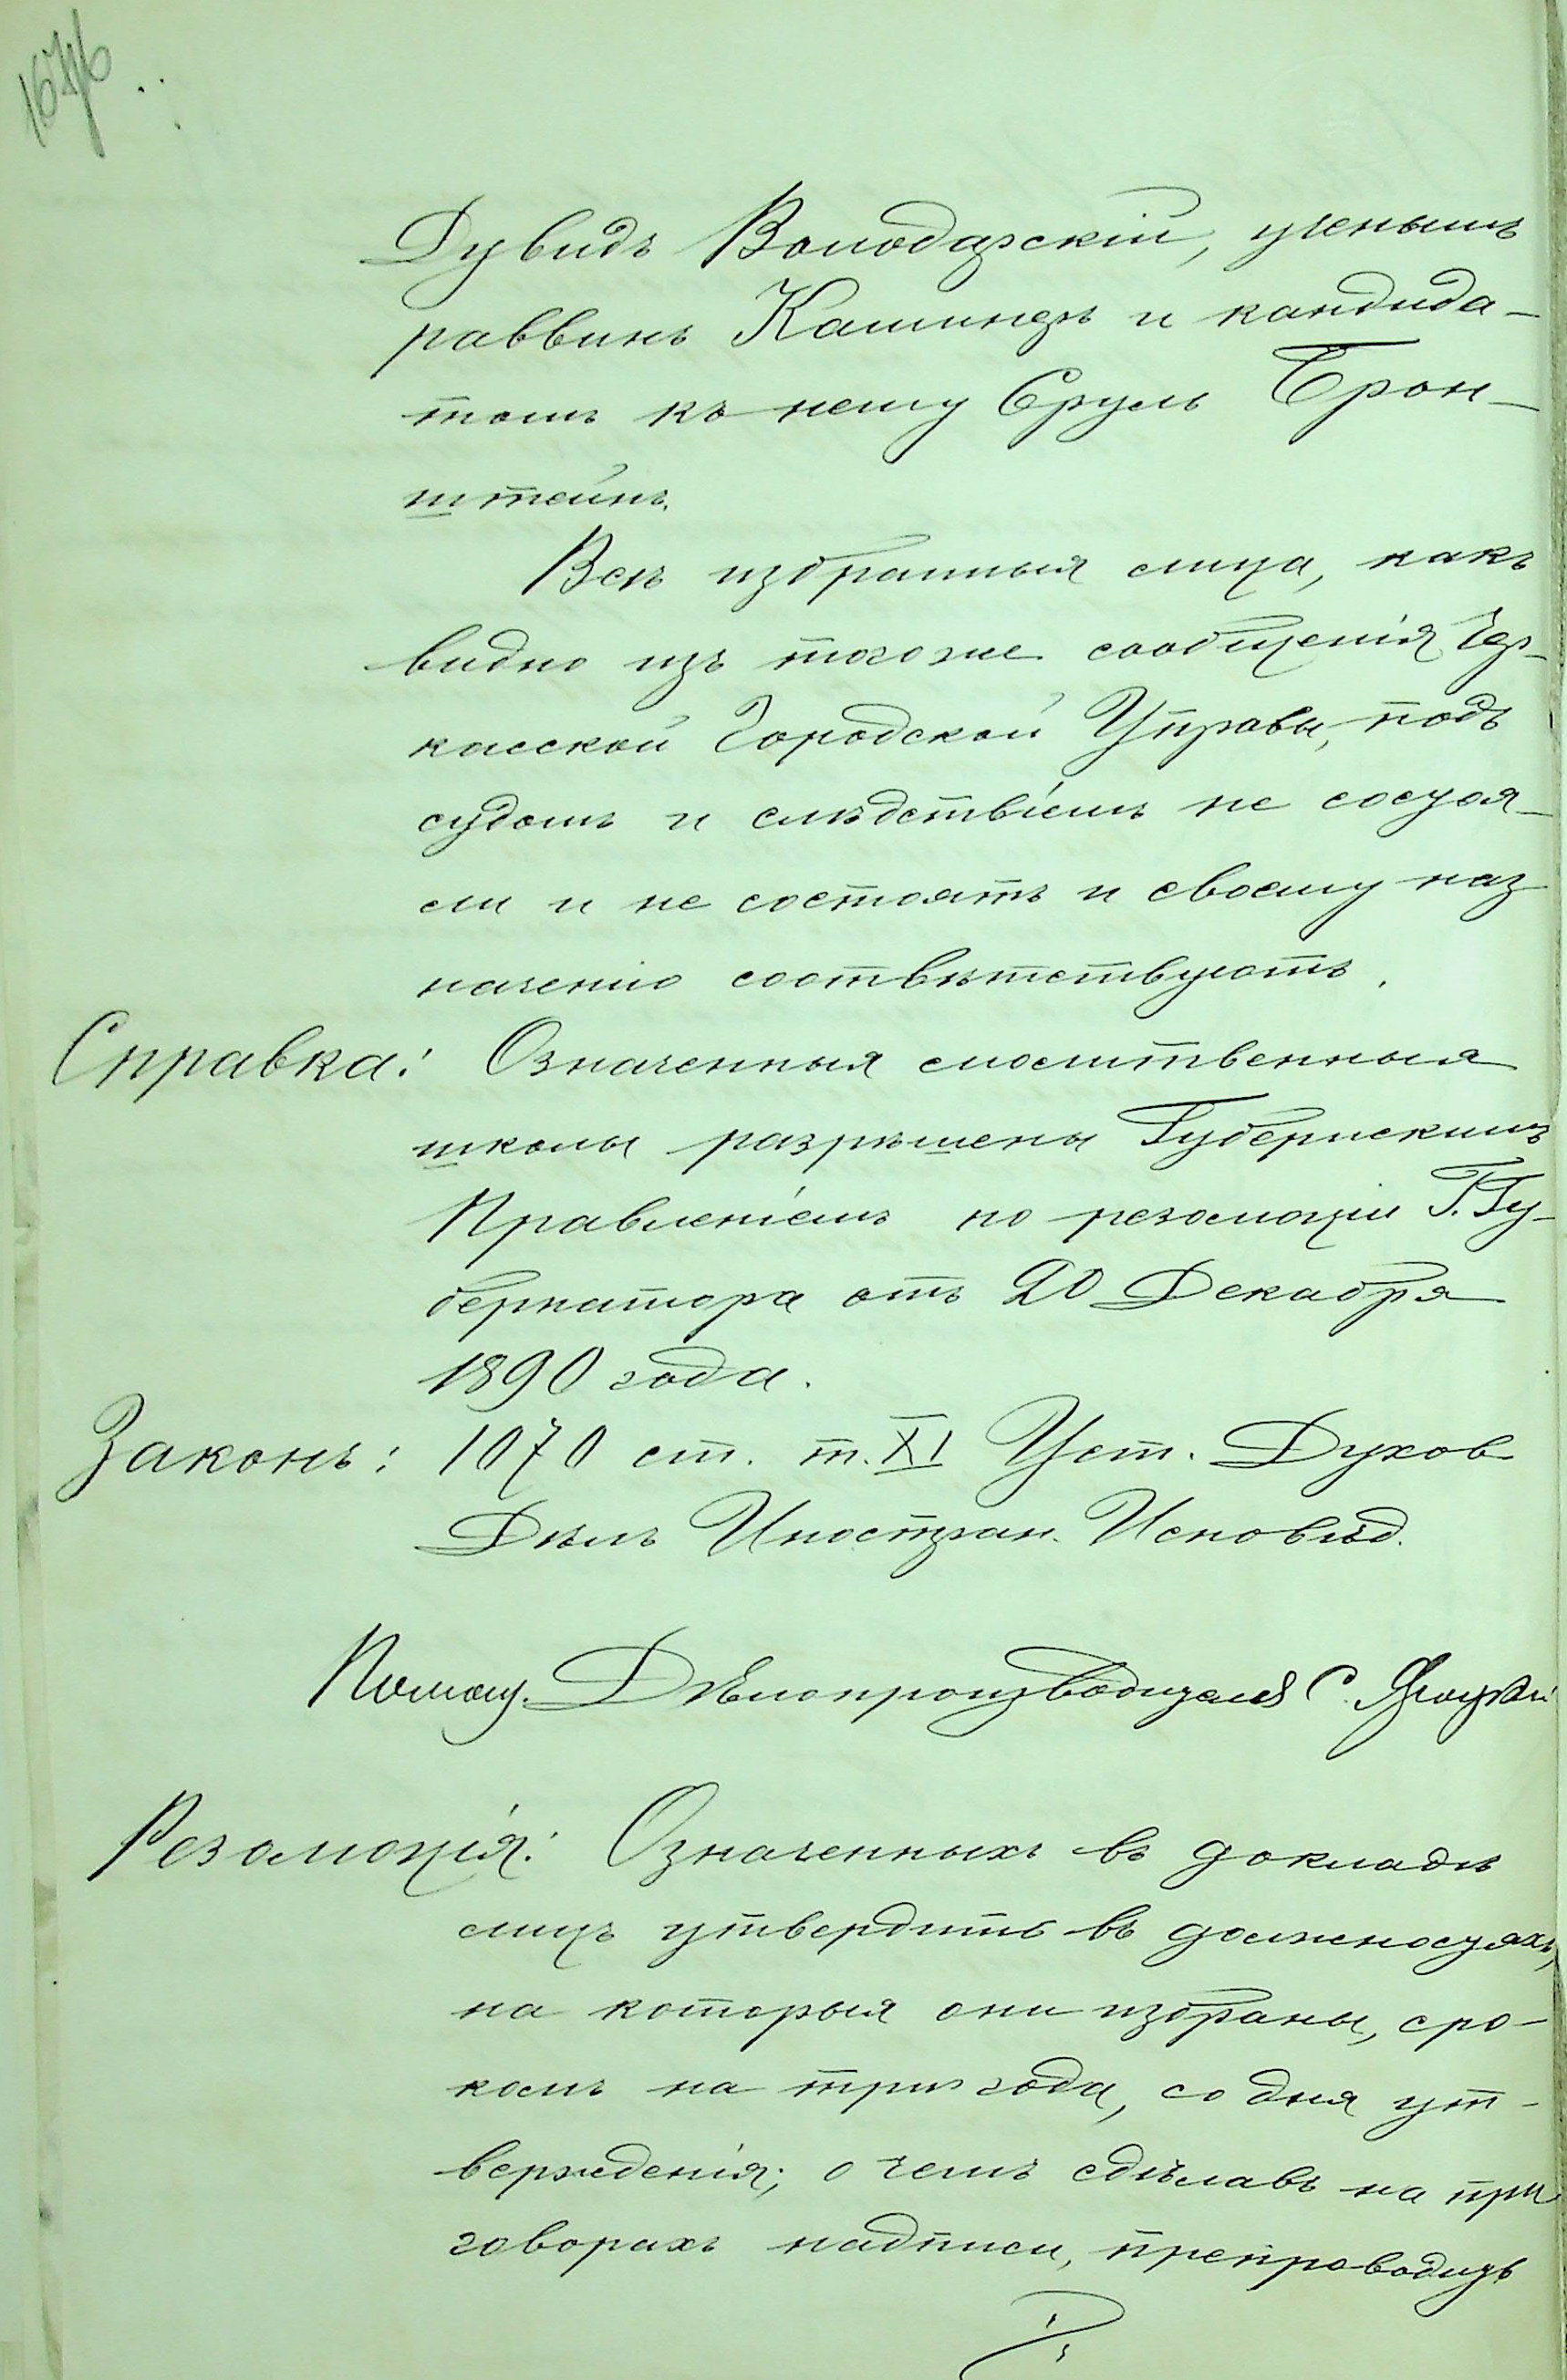 Дувидъ Володарскій, ученымъ
раввинъ Каминеръ и кандида-
томъ къ нему Сруль Брон-
штейнъ.
Всѣ избранныя лица, какъ
видно изъ того же сообщенія Чер-
касской Городской Управы, подъ
судомъ и слѣдствіемъ не состоя-
ли и не состоятъ и своему наз
наченію соотвѣтствуютъ.
Справка: Означенныя молитвенныя
школы разрѣшены Губернскимъ
Правленіемъ по резолюціи Г. Гу-
бернатора отъ 20 Декабря
1890 года.
Законъ: 1070 ст. т. XI Уст. Духов
Дѣлъ Иностран. Исповѣд.
Помощ. Дѣлопроизводителя С.
Резолюція: Означенныхъ въ докладѣ
лицъ утвердить въ должностяхъ,
на которыя они избраны, сро-
комъ на три года, со дня ут-
вержденія; о чемъ сдѣлавъ на при
говорахъ надписи, препроводить